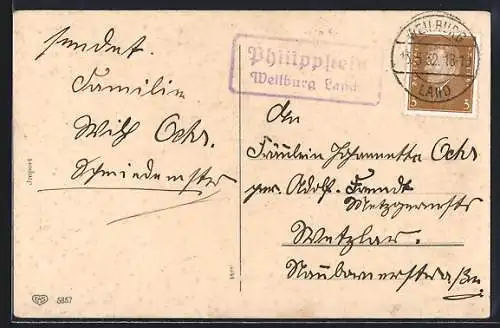 sendet.
Familie
Wilh Ochs.
Schmiedemstr
Philippstein
Weilburg Land
WEILBURG
15.5.32.18-19
LAND
3 3
An
Fräulein Johannetta Ochs
per. Adolf. Freudt
Metzgermstr
Wetzlar.
Naubornerstraße
Import
5857